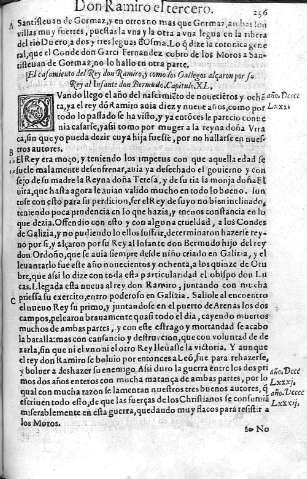 Don Ramiro el tercero. 256
A Santisteuan de Gormaz, y en otros no mas que Gormaz, ambas son
villas muy fuertes, puestas la vna y la otra a vna legua en la ribera
del rio Duero, a dos y tres leguas Osma. Lo q̃ dize la coronica gene
ral, que el Conde don Garci Fernandez cobro de los Moros a San-
tisteuan de Gormaz, no lo hallo en otra parte.
El casamiento del Rey don Ramiro, y como los Gallegos alçaron por su
Rey al Infante don Bermudo. Capitulo. XL.
QVando llego el año del nascimiẽto de nouecientos y ochẽ
ta, ya el rey dõ Ramiro auia diez y nueue años, como por
todo lo passado se ha visto, y ya entõces le parecio conue
nia casarse, y assi tomo por muger a la reyna doña Vrra
ca, sin que yo pueda dezir cuya hija fuesse, por no hallarse en nues-
B tros autores.
El Rey era moço, y teniendo los impetus con que aquella edad se
suele malamente desenfrenar, auia ya desechado el gouierno y con
sejo de su madre la Reyna doña Teresa, y de su tia la monja doña El
uira, que hasta agora le auian valido mucho en todo lo bueno. Jun
tose con esto para su perdicion, ser el Rey de suyo no bien inclinado,
teniendo poca prudencia en lo que hazia, y menos constancia en lo
que dezia. Offendio con esto y con alguna crueldad, a los Condes
de Galizia, y no pudiendo lo ellos suffrir, determinaron hazerle rey-
no por si, y alçaron por su Rey al Infante don Bermudo hijo del rey
don Ordoño, que se auia siempre desde niño criado en Galizia, y el
leuantarlo fue este año nouecientos y ochenta, a los quinze de Otu
bre, que assi lo dize con toda esta particularidad el obispo don Lu
cas. Llegada esta nueua al rey don Ramiro, juntando con mucha
C priessa su exercito, entro poderoso en Galizia. Saliole al encuentro
el nueuo Rey su primo, y juntandose en el puerto de Arenas los dos
campos, pelearon brauamente quasi todo el dia, cayendo muertos
muchos de ambas partes, y con este estrago y mortandad se acabo
la batalla: mas con cansancio y destruicion, que con voluntad de de
xarla, sin que ni el vno ni el otro Rey lleuasse la victoria. Y aunque
el rey don Ramiro se boluio por entonces a Leõ, fue para rehazerse,
y boluer a deshazer su enemigo. Assi duro la guerra entre los dos pri
mos dos años enteros con mucha matança de ambas partes, por lo
qual con mucha razon se lamentan nuestros tres buenos autores, q̃
escriuen todo esto, de que las fuerças de los Christianos se consumiã
miserablemente en esta guerra, quedando muy flacos para resistir a
los Moros.
No
año. Dcccc
Lxxx.
año. Dcccc
Lxxxj.
año. Dcccc
Lxxxij.